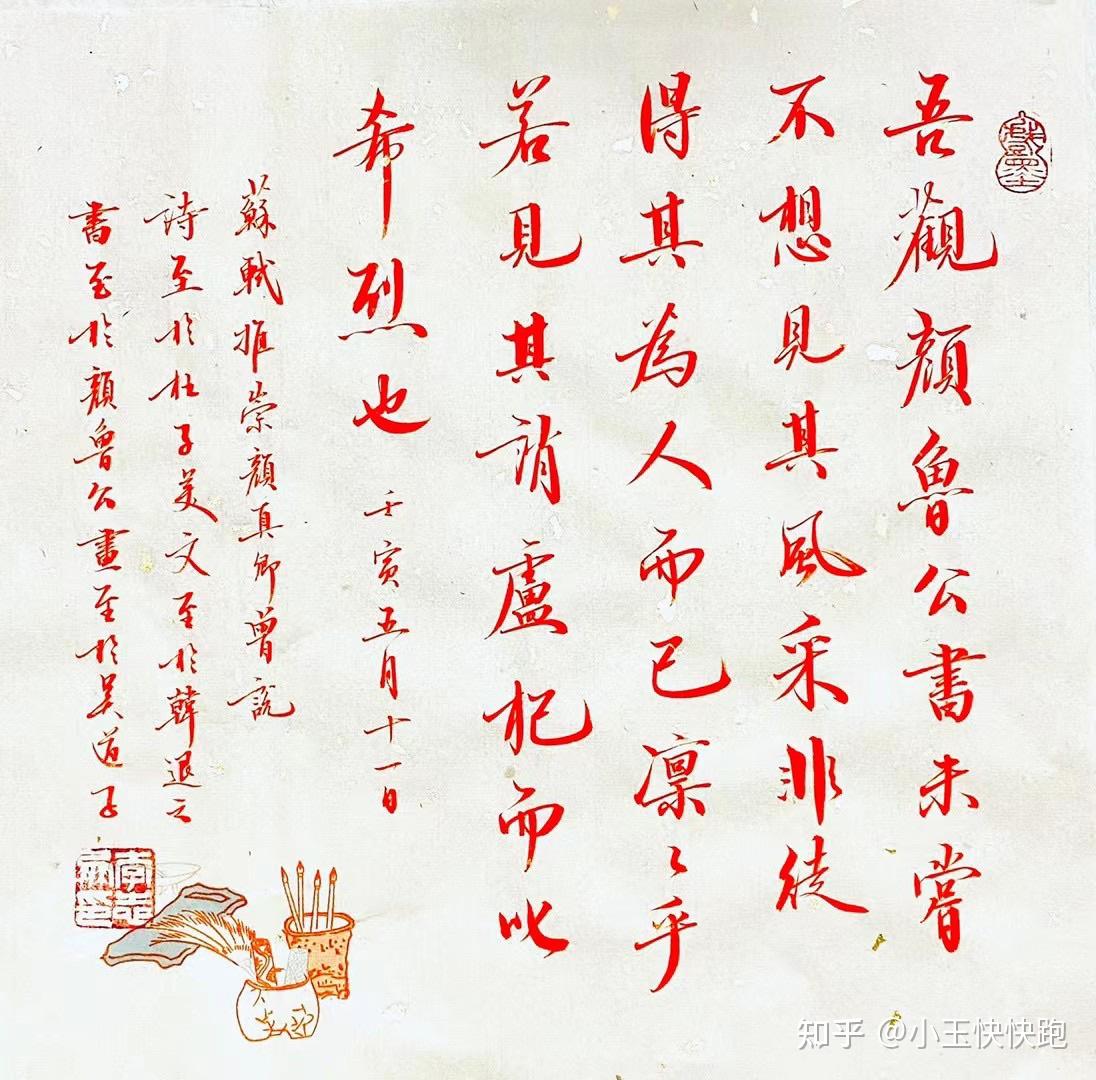 吾觀顏魯公書未嘗
不想見其風采非徒
得其為人而已凜〻乎
若見其誚盧杞而叱
希烈也
壬寅五月十一日
蘇軾推崇顏真卿曾說
詩至於杜子美文至於韓退之
書至於顏魯公畫至於吳道子
知乎 @小玉快快跑